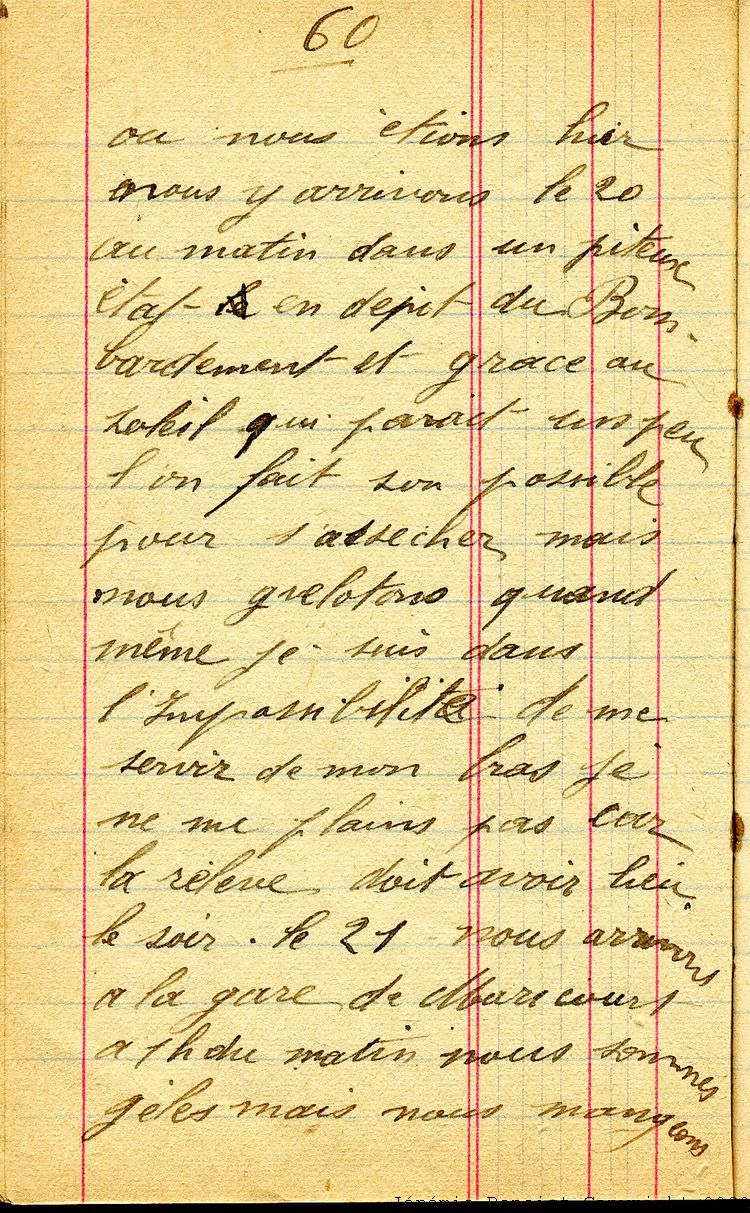 60
ou nous étions hier
nous y arrivons le 20
au matin dans un piteux
état en dépit du Bom-
bardement et grace au
soleil qui parait un peu
l'on fait son possible
pour s'assecher mais
nous grelotons quand
même je suis dans
l'Impossibilité de me
servir de mon bras je
ne me plains pas car
la rélève doit avoir lieu
le soir. le 21 nous arrivons
a la gare de Maricourt
a 1h du matin nous sommes
gelés mais nous mangeons